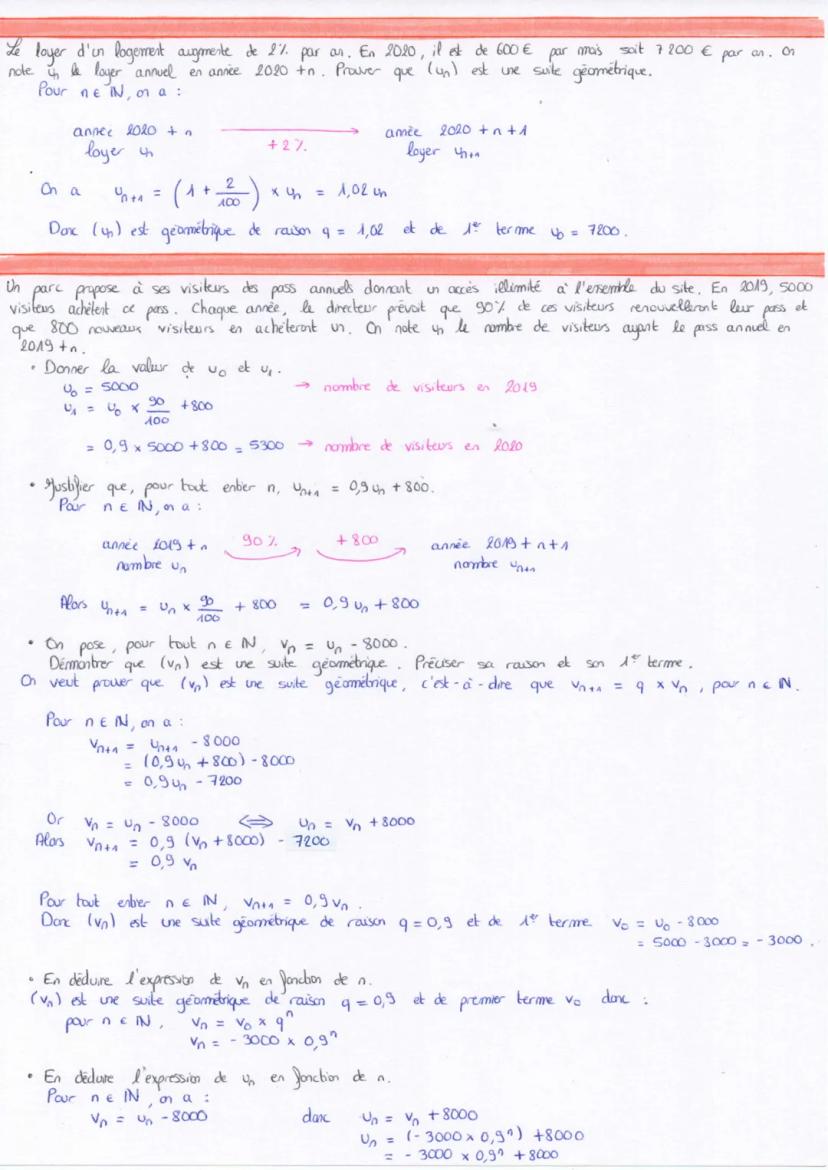 Le loyer d'un logement augmente de 2% par an. En 2020, il est de 600 € par mois soit 7 200 € par an. On
note un le loyer annuel en année 2020 + n. Prouver que (un) est une suite géométrique.
Pour n ∈ IN, on a :
année 2020 + n → année 2020 + n + 1
+ 2 %
loyer un loyer un+1
On a un+1 = (1 + 2/100) × un = 1,02 un
Donc (un) est géométrique de raison q = 1,02 et de 1er terme u0 = 7200.
Un parc propose à ses visiteurs des pass annuels donnant un accès illimité à l'ensemble du site. En 2019, 5000
visiteurs achètent ce pass. Chaque année, le directeur prévoit que 90% de ces visiteurs renouvelleront leur pass et
que 800 nouveaux visiteurs en achèteront un. On note un le nombre de visiteurs ayant le pass annuel en
2019 + n.
• Donner la valeur de u0 et u1.
u0 = 5000 → nombre de visiteurs en 2019
u1 = u0 × 90/100 + 800
= 0,9 × 5000 + 800 = 5300 → nombre de visiteurs en 2020
• Justifier que, pour tout entier n, un+1 = 0,9 un + 800.
Pour n ∈ IN, on a :
année 2019 + n 90 % + 800 année 2019 + n + 1
nombre un nombre un+1
Alors un+1 = un × 90/100 + 800 = 0,9 un + 800
• On pose, pour tout n ∈ IN, vn = un - 8000.
Démontrer que (vn) est une suite géométrique. Préciser sa raison et son 1er terme.
On veut prouver que (vn) est une suite géométrique, c'est-à-dire que vn+1 = q × vn, pour n ∈ IN.
Pour n ∈ IN, on a :
vn+1 = un+1 - 8000
= (0,9 un + 800) - 8000
= 0,9 un - 7200
Or vn = un - 8000 ⟺ un = vn + 8000
Alors vn+1 = 0,9 (vn + 8000) - 7200
= 0,9 vn
Pour tout entier n ∈ IN, vn+1 = 0,9 vn.
Donc (vn) est une suite géométrique de raison q = 0,9 et de 1er terme v0 = u0 - 8000
= 5000 - 3000 = - 3000.
• En déduire l'expression de vn en fonction de n.
(vn) est une suite géométrique de raison q = 0,9 et de premier terme v0 donc :
pour n ∈ IN, vn = v0 × qⁿ
vn = - 3000 × 0,9ⁿ
• En déduire l'expression de un en fonction de n.
Pour n ∈ IN, on a :
vn = un - 8000 donc un = vn + 8000
un = (- 3000 × 0,9ⁿ) + 8000
= - 3000 × 0,9ⁿ + 8000